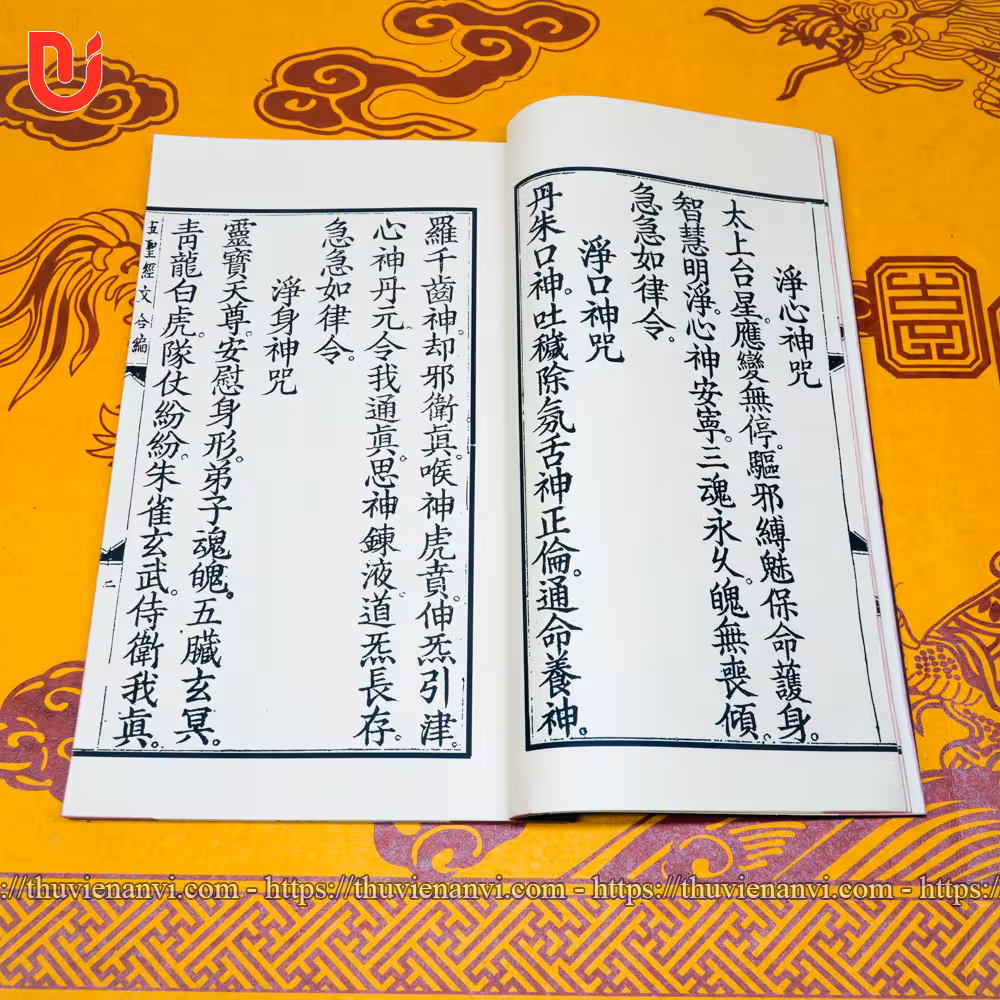 淨心神咒
太上台星。應變無停。驅邪縛魅保命護身。
智慧明淨。心神安寧。三魂永久。魄無喪傾。
急急如律令。
淨口神咒
丹朱口神。吐穢除氛舌神正倫。通命養神。
羅千齒神。却邪衛眞。喉神虎賁。伸炁引津。
心神丹元。令我通眞。思神鍊液。道炁長存。
急急如律令。
淨身神咒
靈寶天尊。安慰身形。弟子魂魄。五臟玄冥。
青龍白虎。隊仗紛紛。朱雀玄武。侍衛我眞。
五聖經文合編
二
https://thuvienanvi.com - https://thuvienanvi.com - https://thuvienanvi.com - https://thuvienanvi.com